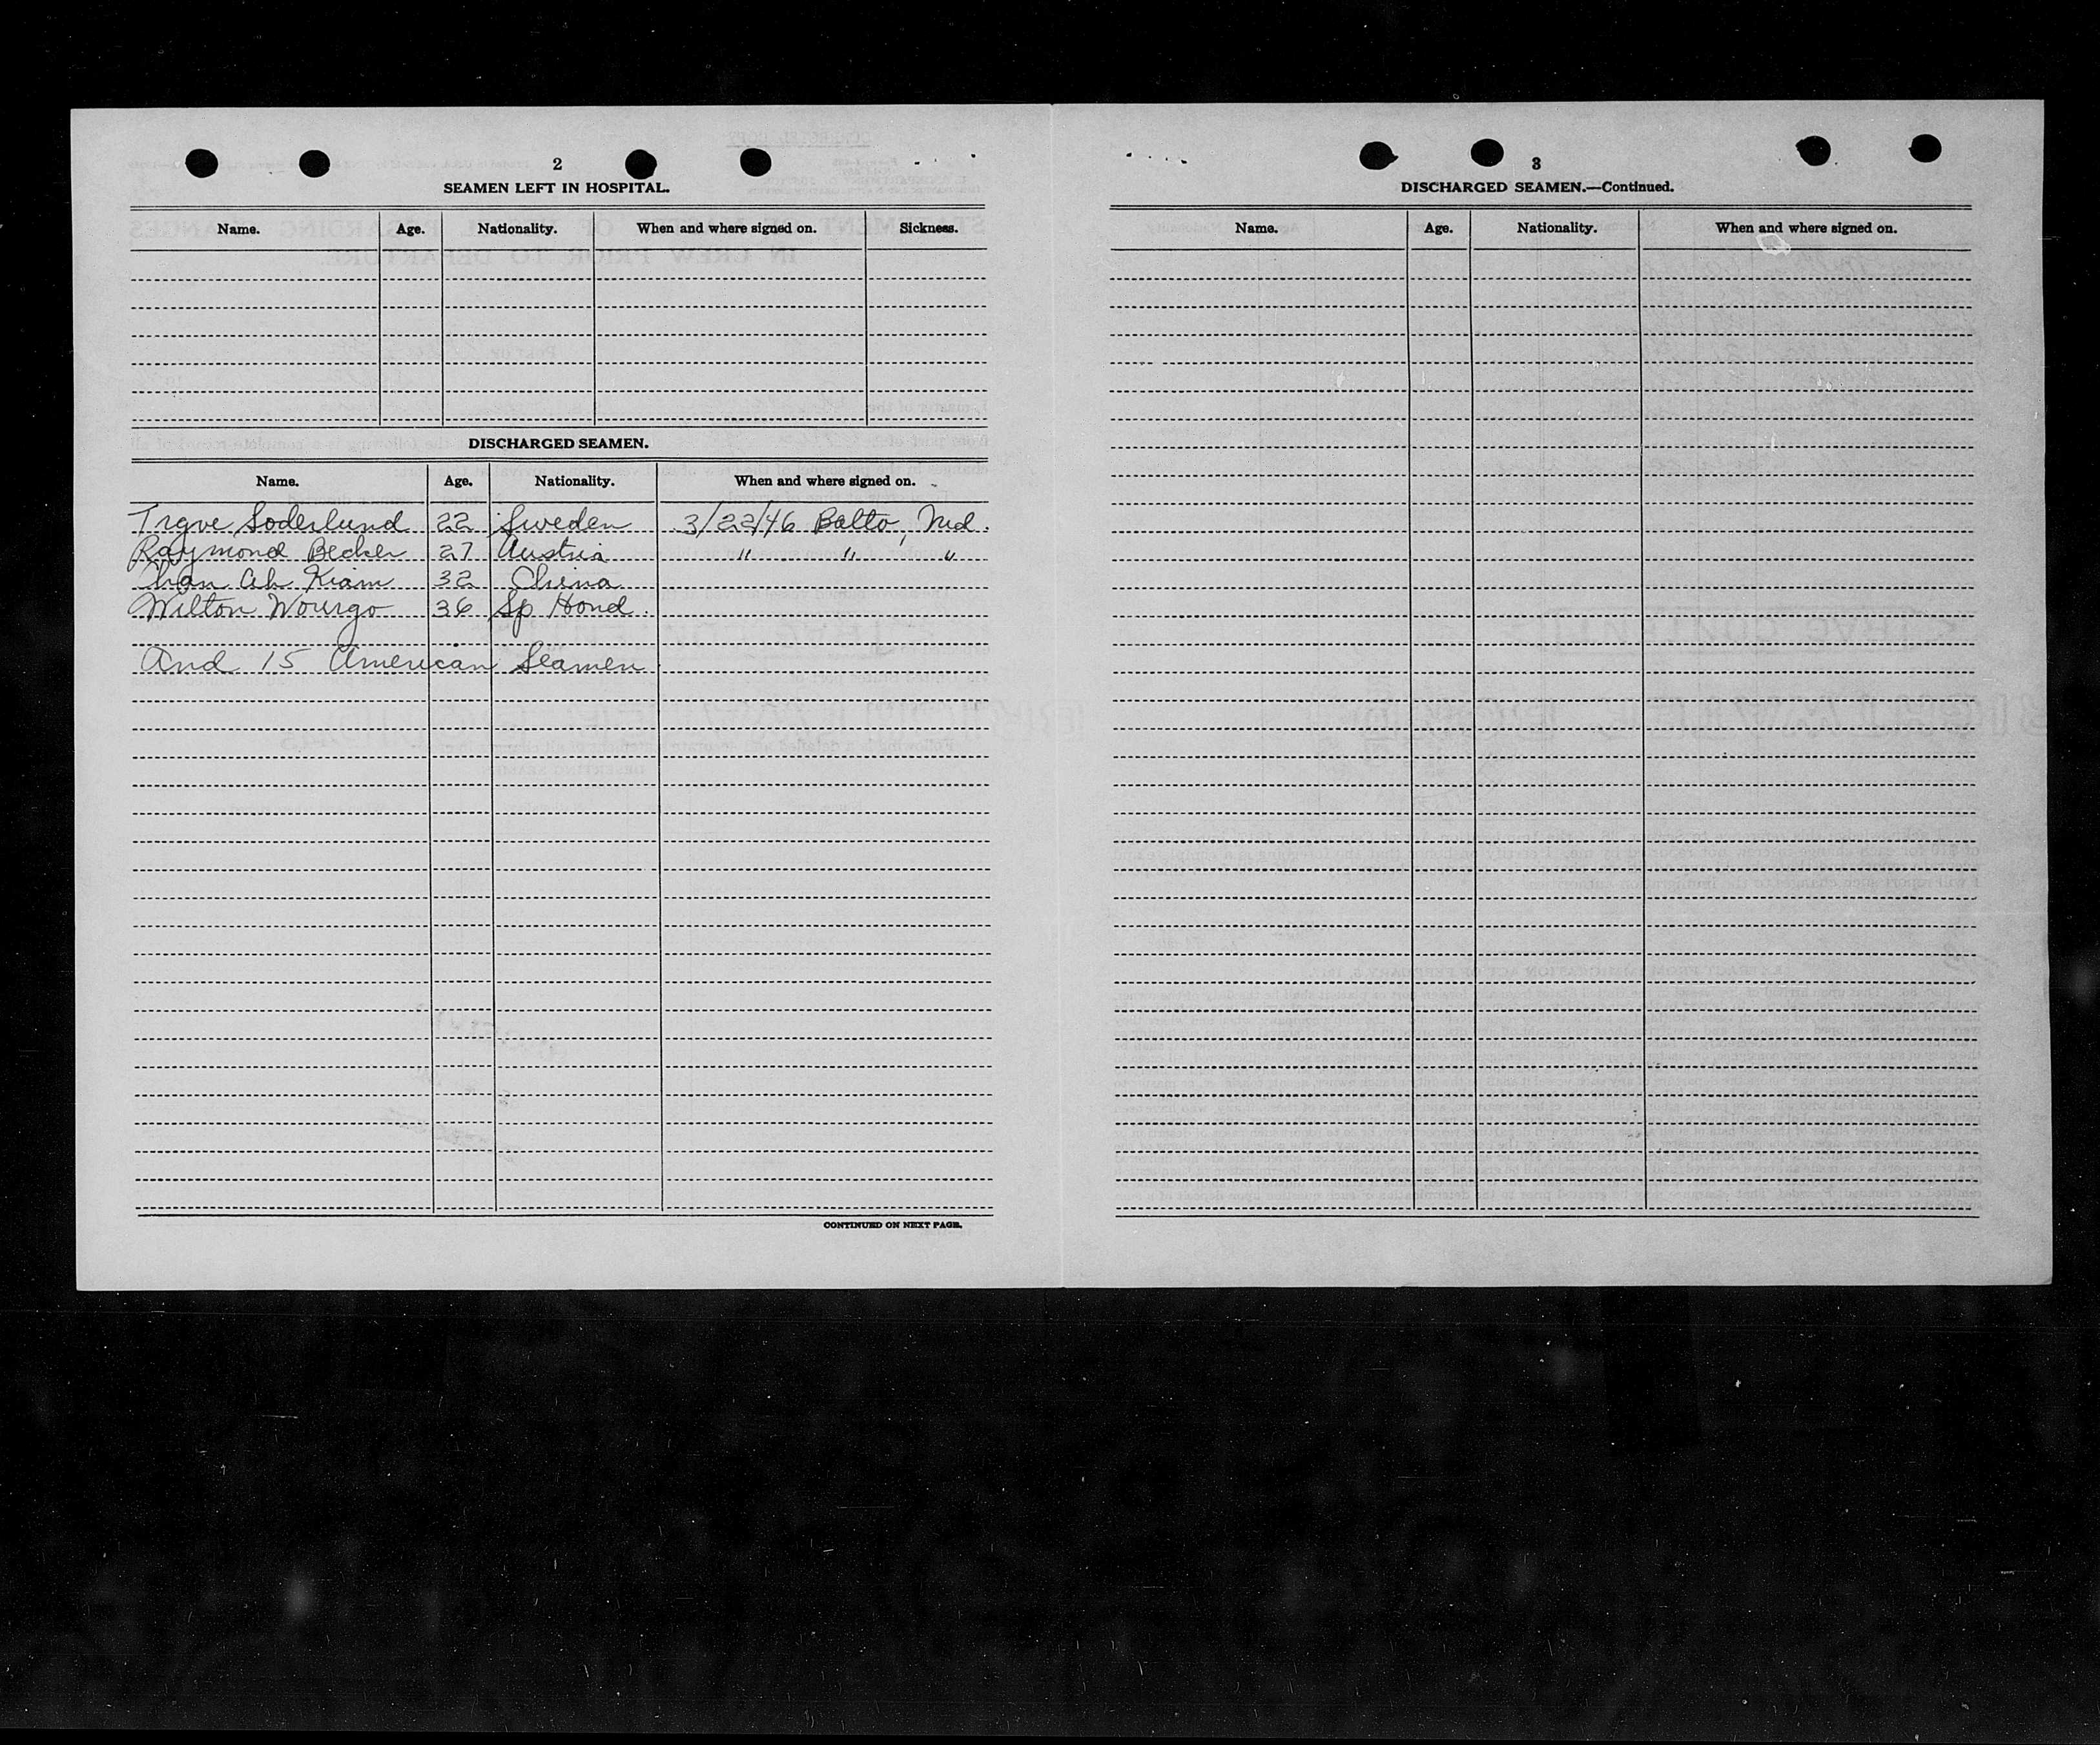 2
SEAMEN LEFT IN HOSPITAL.
Name. Age. Nationality. When and where signed on. Sickness.
DISCHARGED SEAMEN.
Name. Age. Nationality. When and where signed on.
Trgve Soderlund 22 Sweden 3/22/46 Balto, Md.
Raymond Becker 27 Austria " " "
Ah Kiam 32 China
Wilton 36 Sp Hond.
And 15 American Seamen
CONTINUED ON NEXT PAGE.
3
DISCHARGED SEAMEN.—Continued.
Name. Age. Nationality. When and where signed on.